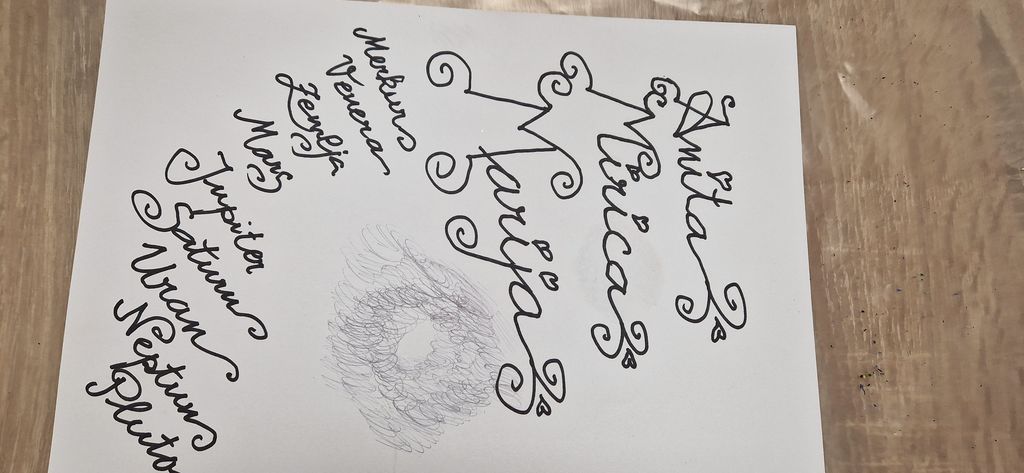 Anita
Mirica
Marija
Merkur
Venera
Zemlja
Mars
Jupiter
Saturn
Uran
Neptun
Pluto